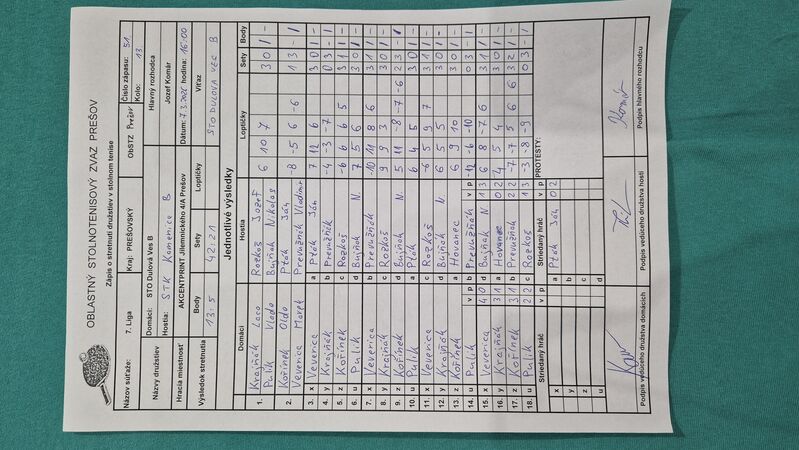 OBLASTNÝ STOLNOTENISOVÝ ZVAZ PREŠOV
Zápis o stretnutí družstiev v stolnom tenise
Názov súťaže: 7. Liga Kraj: PREŠOVSKÝ ObSTZ Prešov Číslo zápasu: 51
Kolo: 13
Názvy družstiev Domáci: STO Dulová Ves B Hlavný rozhodca
Hostia: STK Kamenica B Jozef Komár
Hracia miestnosť AKCENTPRINT Jilemnického 4/A Prešov Dátum: 7.3.2025 hodina: 16:00
Výsledok stretnutia Body Sety Loptičky Víťaz
13:5 42:21 STO DULOVA VES B
Jednotlivé výsledky
Domáci Hostia Loptičky Sety Body
1. Krajňák Laco Rozkoš Jozef 6 10 7 3 0 1 -
Pulik Vlado Bujňok Nikolas
2. Kořínek Oldo Pták Ján -8 -5 6 -6 1 3 - 1
Veverica Marek Prevužňák Vladimír
3. x Veverica a Pták Ján 7 12 6 3 0 1 -
4. y Krajňák b Prevužňák -4 -3 -7 0 3 - 1
5. z Kořínek c Rozkoš -6 6 6 5 3 1 1 -
6. u Pulik d Bujňok N. 7 5 6 3 0 1 -
7. x Veverica b Prevužňák -10 11 8 6 3 1 1 -
8. y Krajňák c Rozkoš 9 9 3 3 0 1 -
9. z Kořínek d Bujňok N. 5 11 -8 -7 -6 2 3 - 1
10. u Pulik a Pták 6 4 5 3 0 1 -
11. x Veverica c Rozkoš -6 5 9 7 3 1 1 -
12. y Krajňák d Bujňok N 6 5 5 3 0 1 -
13. z Kořínek a Hovanec 6 9 10 3 0 1 -
14. u Pulik v p b Prevužňák v p -12 -6 -10 0 3 - 1
15. x Veverica 4 0 d Bujňok N 1 3 6 8 -7 6 3 1 1 -
16. y Krajňák 3 1 a Hovanec 0 2 4 5 4 3 0 1 -
17. z Kořínek 3 1 b Prevužňák 2 2 -7 -7 5 6 6 3 2 1 -
18. u Pulik 2 2 c Rozkoš 1 3 -3 -8 -9 0 3 - 1
Striedaný hráč v p Striedaný hráč v p PROTESTY:
x a Pták Ján 0 2
y b
z c
u d
Podpis vedúceho družstva domácich Podpis vedúceho družstva hostí Podpis hlavného rozhodcu